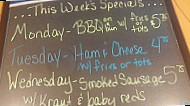 This Week's Specials...
Monday - BBQ on bun w/ fries & tots 5.75
Tuesday - Ham & Cheese 4.75
w/ fries or tots
Wednesday - Smoked Sausage 5.75
w/ Kraut & baby reds